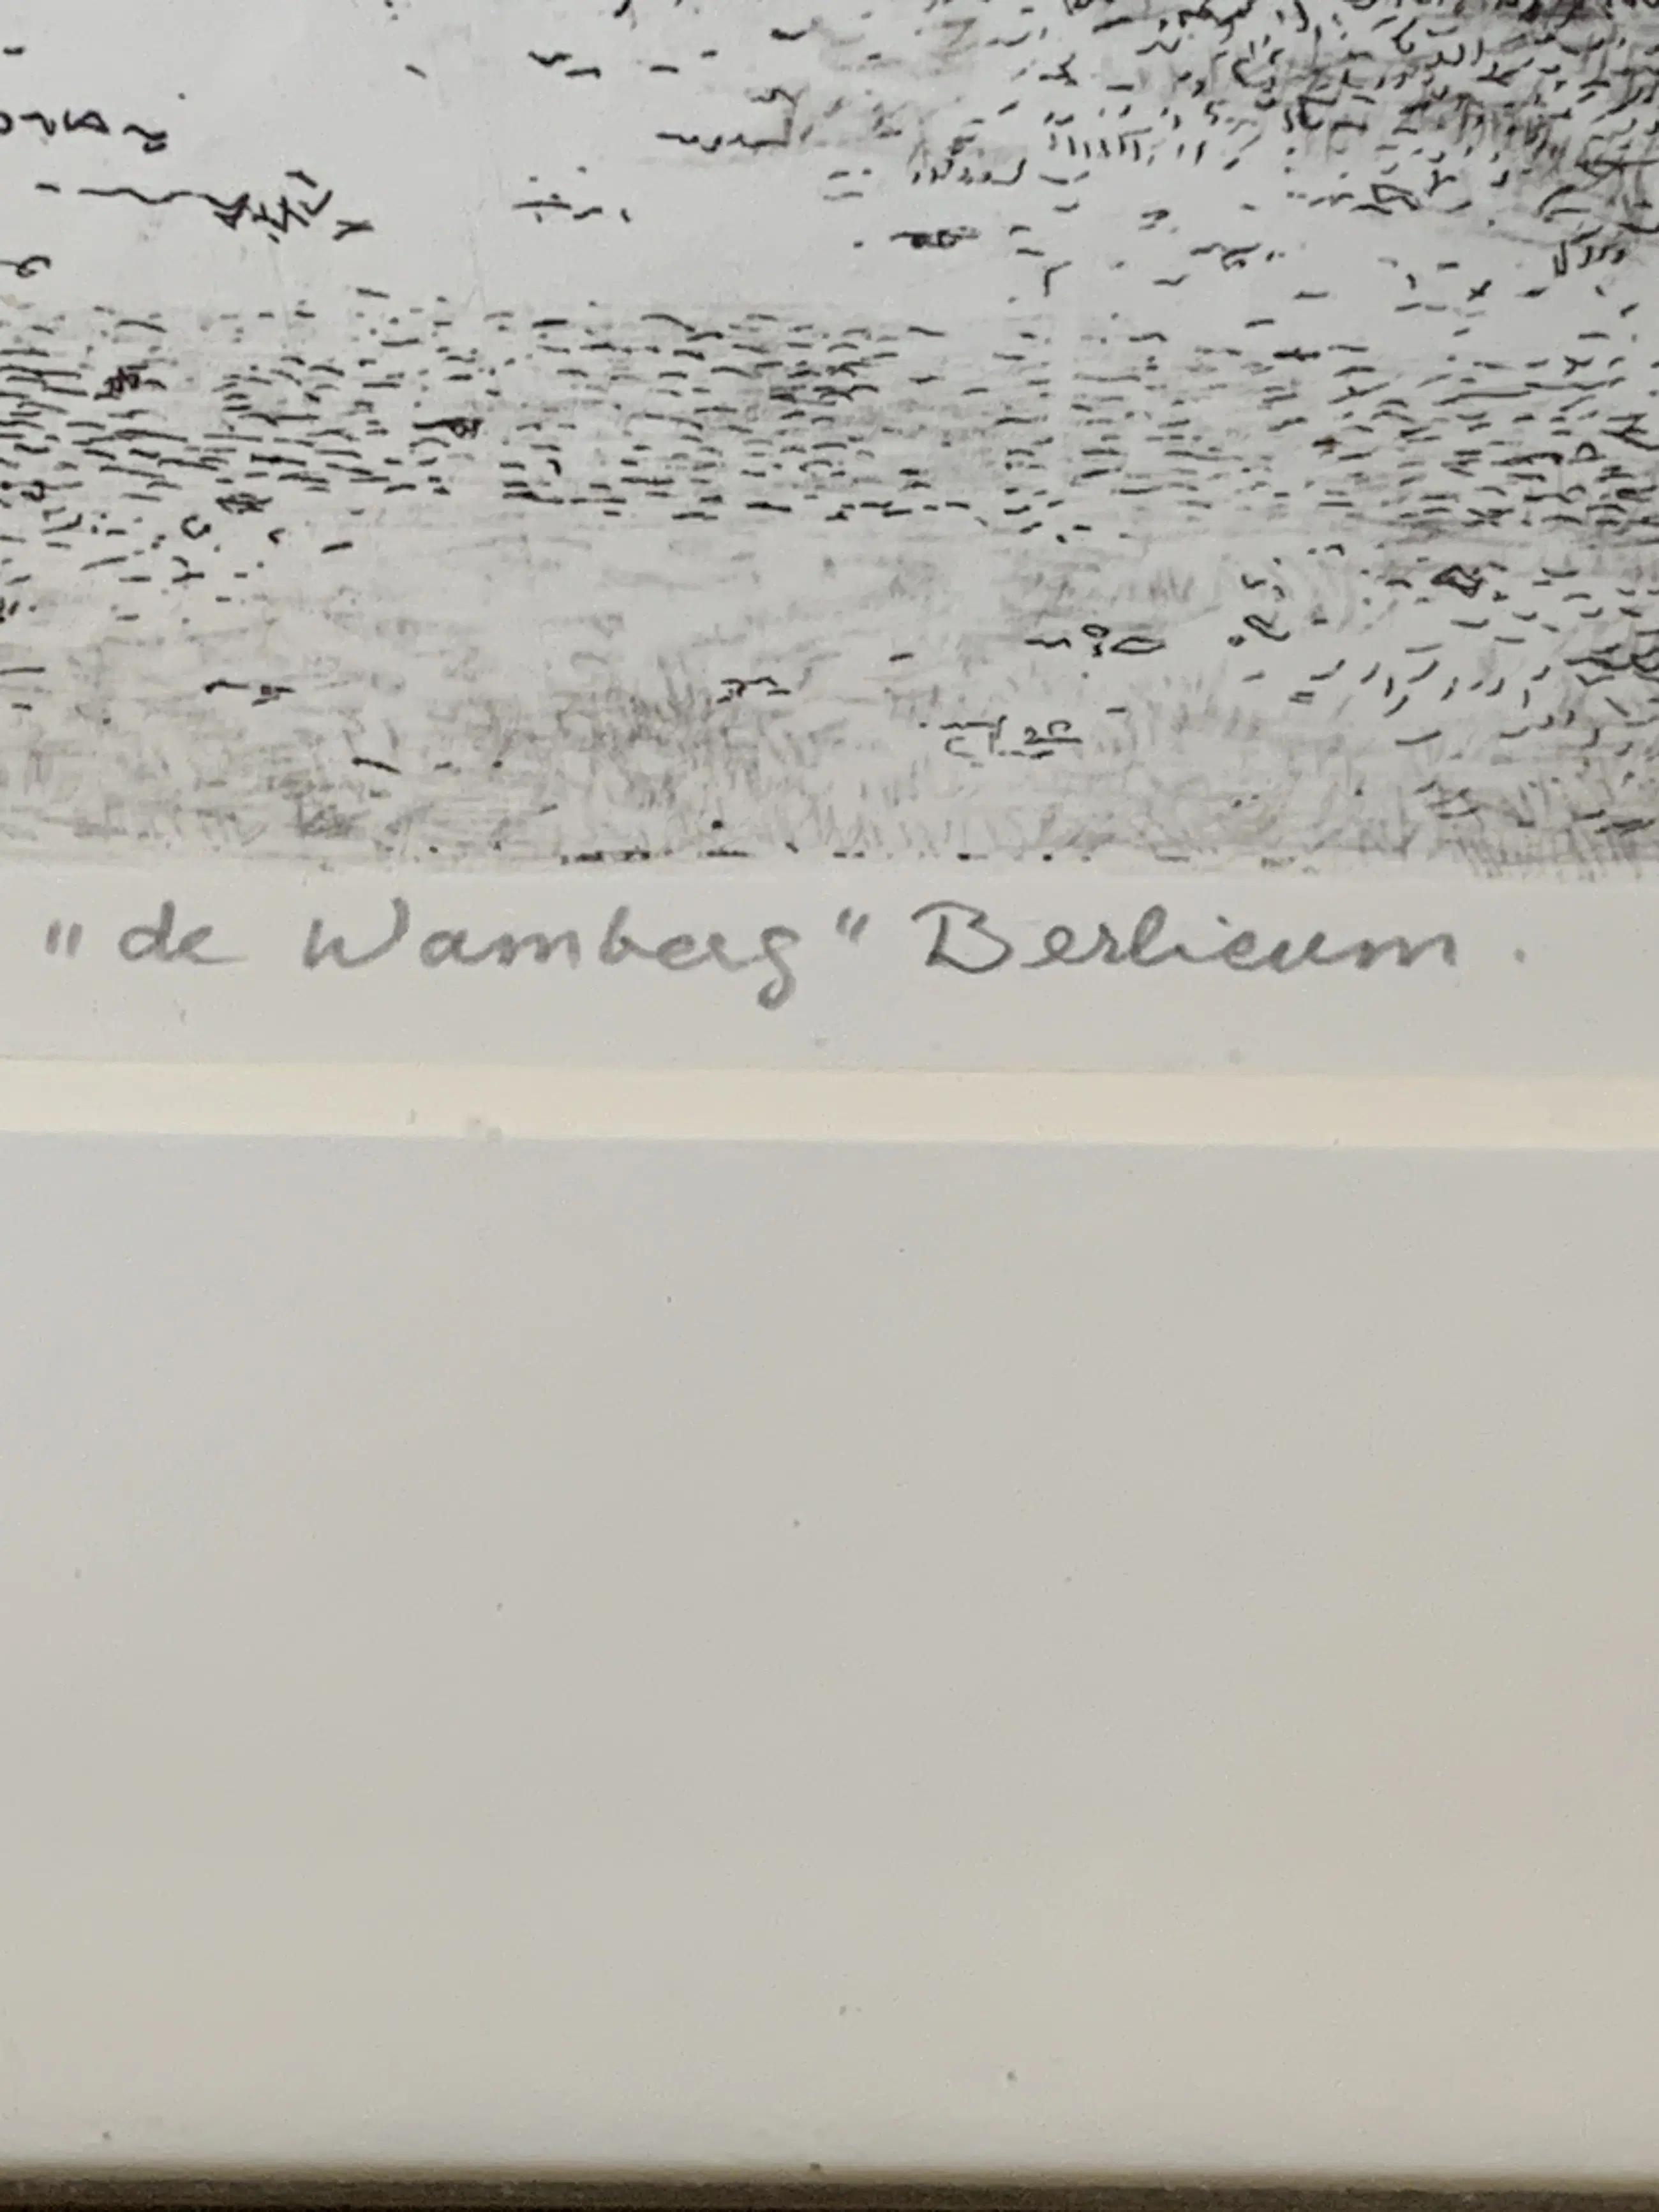 "de Wamberg" Berlicum.